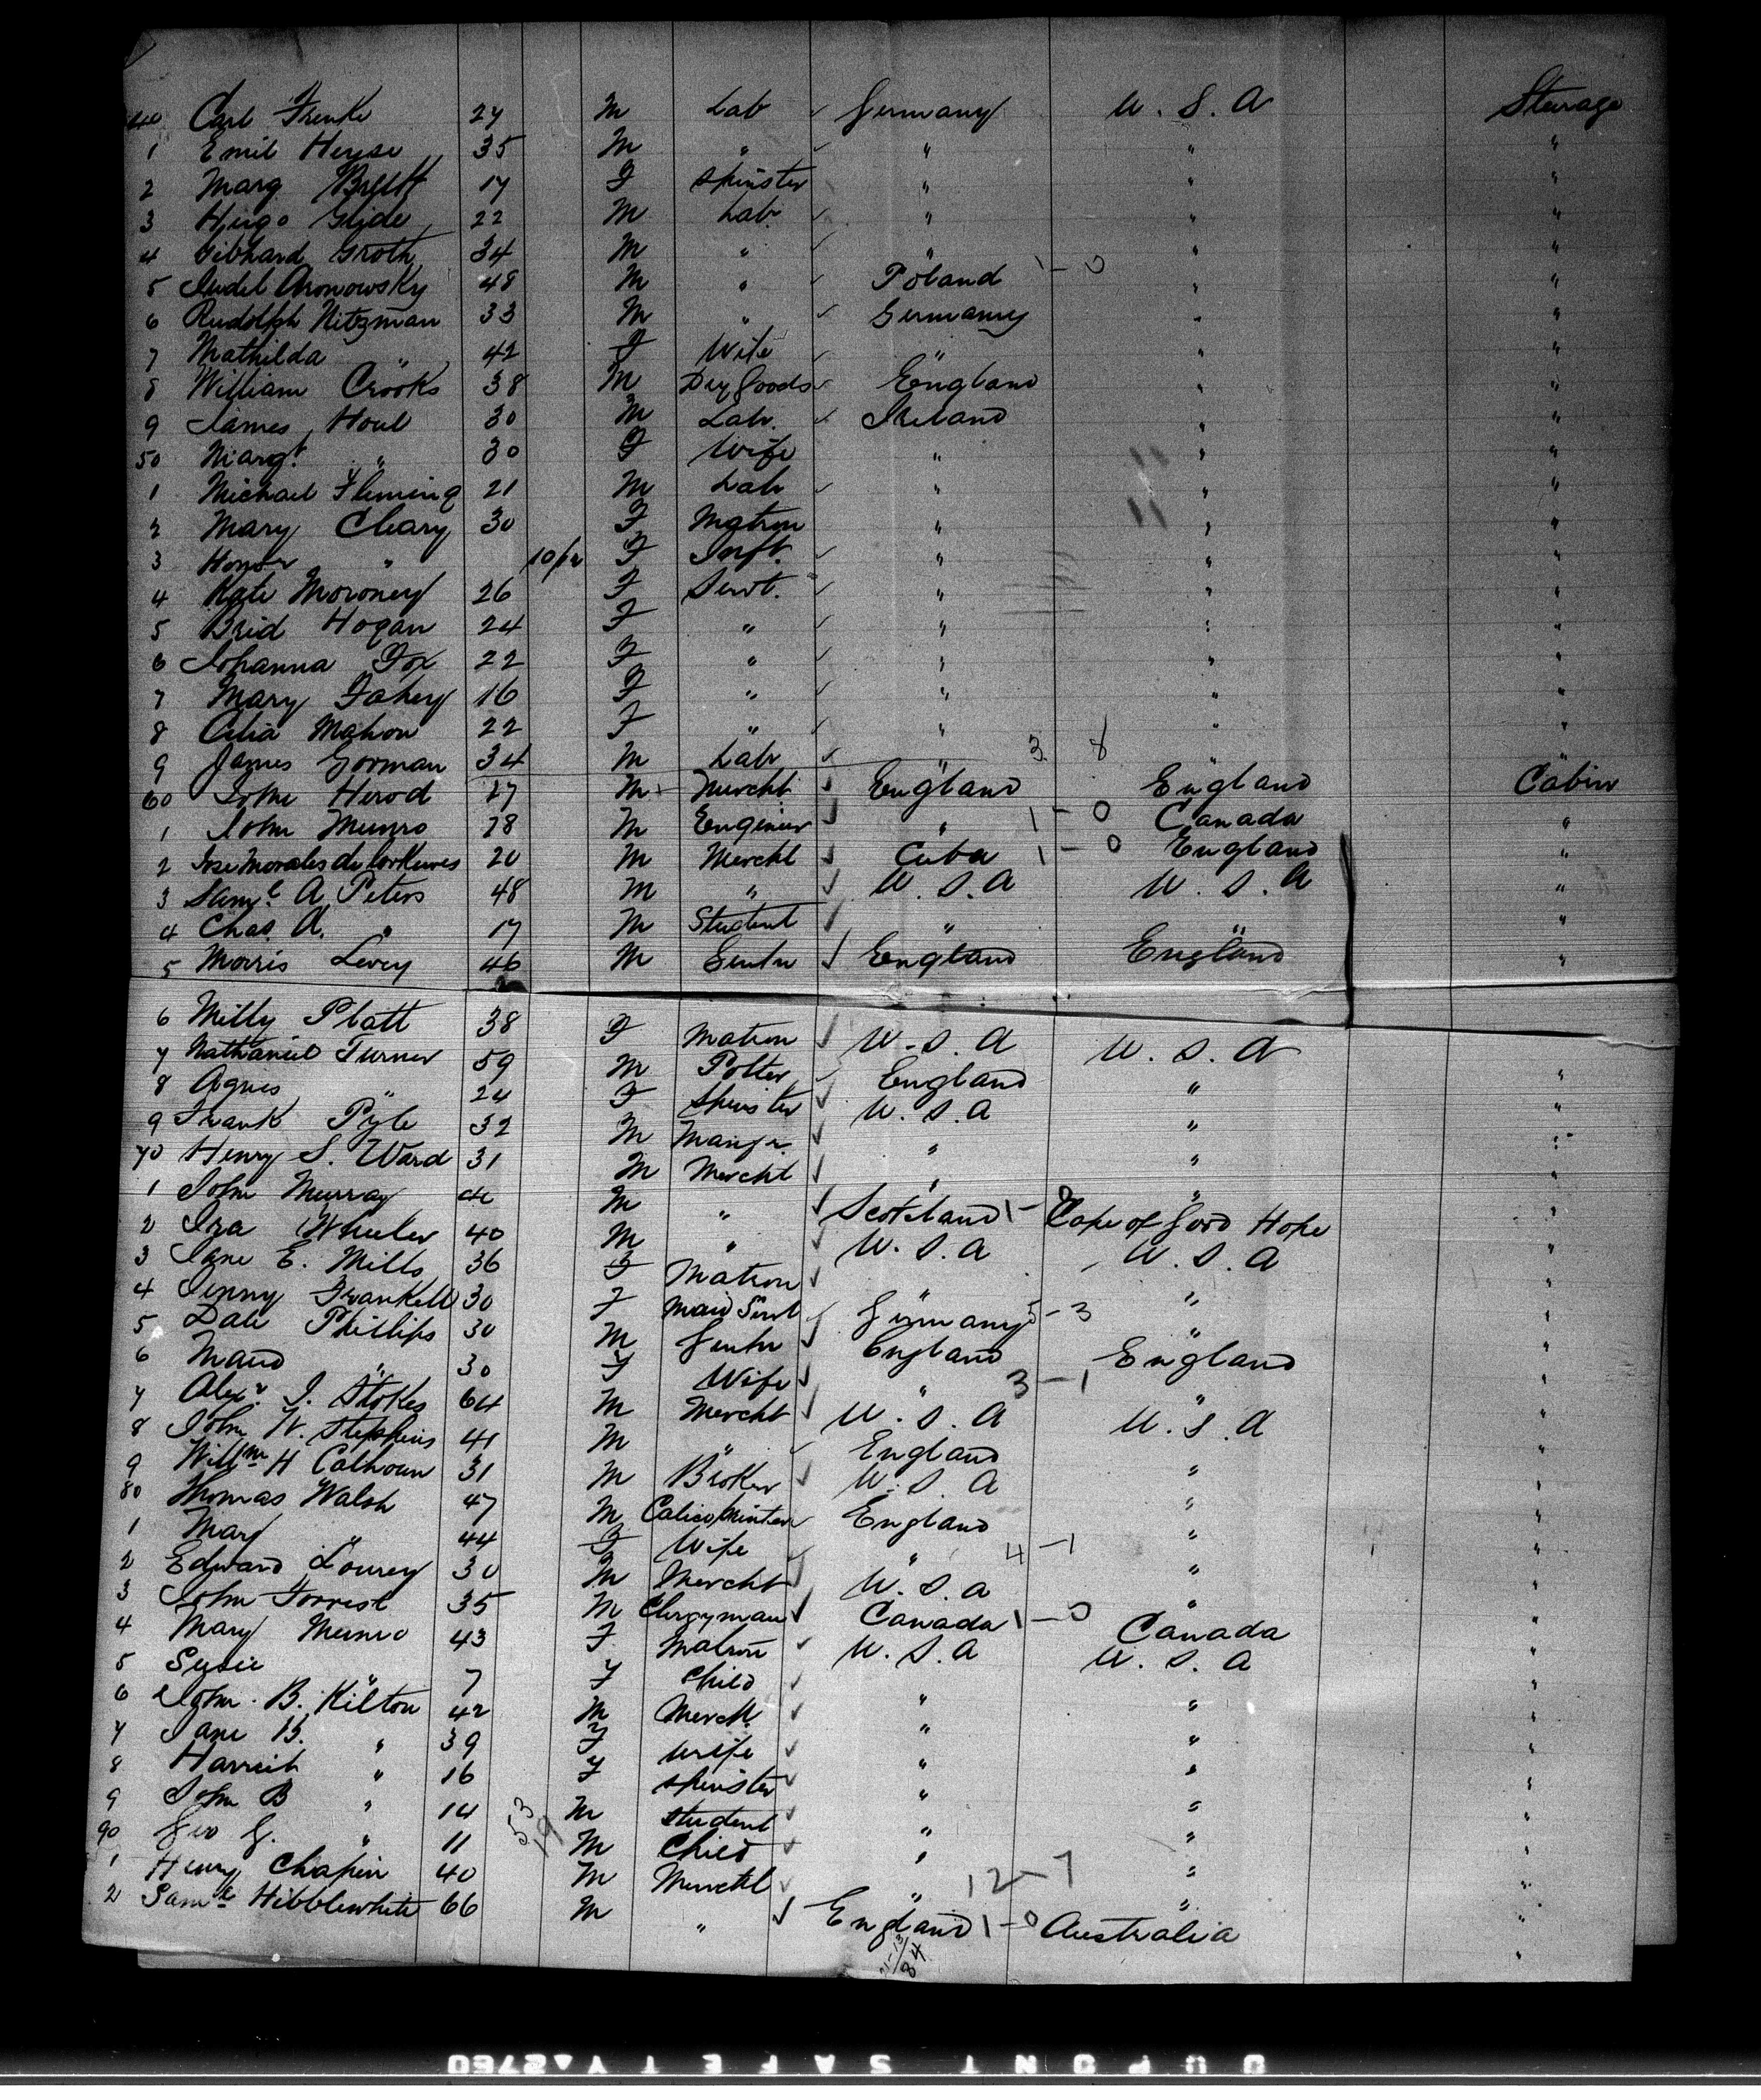 40 Carl Frenke 24 M Lab Germany U.S.A Steerage
1 Emil Heyse 35 M " " " "
2 Marg 17 F Spinster " " "
3 Hugo Glide 22 M Lab. " " "
4 Gebhard Groth 34 M " " " "
5 Judel Aronowsky 48 M " Poland 1-0 " "
6 Rudolph Nitzman 33 M " Germany " "
7 Mathilda " 42 F Wife " " "
8 William Crooks 38 M Dry Goods England " "
9 James Houl 30 M Lab. Ireland " "
50 Margt. " 30 F Wife " " "
1 Michael Fleming 21 M Lab " " "
2 Mary Cleary 30 F Matron " " "
3 Honor " 10/12 F Inft. " " "
4 Kate Moroney 26 F Servt. " " "
5 Brid Hogan 24 F " " " "
6 Johanna Fox 22 F " " " "
7 Mary Fahey 16 F " " " "
8 Celia Mahon 22 F " " " "
9 James Gorman 34 M Labr " 3 8 " "
60 John Herod 27 M Mercht England England Cabin
1 John Munro 28 M Engineer " 1-0 Canada "
2 Jose Morales de 20 M Mercht Cuba 1-0 England "
3 Saml A. Peters 48 M " U.S.A U.S.A "
4 Chas. A. " 17 M Student " " "
5 Morris Levey 46 M Gentn England England "
6 Milly Platt 38 F Matron U.S.A U.S.A
7 Nathaniel Turner 59 M Potter England " "
8 Agnes " 24 F Spinster U.S.A " "
9 Frank Pyle 32 M Mangr. " " "
70 Henry S. Ward 31 M Mercht " " "
1 John Murray M " Scotland 1-0 Cape of Good Hope "
2 Ira Wheeler 40 M " U.S.A U.S.A "
3 Jane E. Mills 36 F Matron " " "
4 Jenny Frankell 30 F Maid Servt Germany 5-3 " "
5 Dale Phillips 30 M Gentn England England "
6 Maud " 30 F Wife " 3-1 " "
7 Alexr J. Stokes 64 M Mercht U.S.A U.S.A "
8 John W. Stephens 41 M " England " "
9 Willm H Calhoun 31 M Broker U.S.A " "
80 Thomas Walsh 47 M Calico Printer England " "
1 Mary " 44 F Wife " 4-1 " "
2 Edward Lourey 30 M Mercht U.S.A " "
3 John Forrest 35 M Clergyman Canada 1-0 Canada "
4 Mary Munro 43 F Matron U.S.A U.S.A "
5 Sysie " 7 F Child " " "
6 John B. Kilton 42 M Mercht. " " "
7 Jane B. " 39 F Wife " " "
8 Harriet " 16 F Spinster " " "
9 John B " 14 M Student " " "
90 Geo G. " 11 53 19 M Child " " "
1 Henry Chapin 40 M Mercht " 12-7 " "
2 Saml Hibblewhite 66 M " England 1-0 Australia "
DUPONT SAFETY 2760